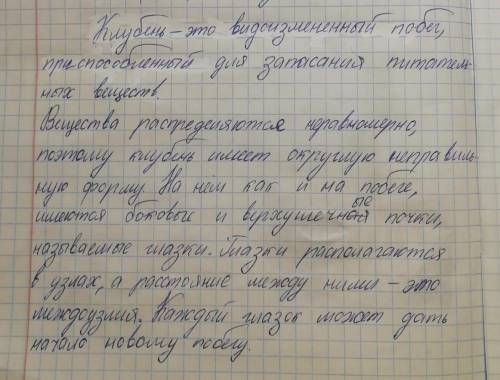 Клубень – это видоизмененный побег,
приспособленный для запасания питатель-
ных веществ.
Вещества распределяются неравномерно,
поэтому клубень имеет округлую неправиль-
ную форму. На нём как и на побеге,
имеются боковые и верхушечные почки,
называемые глазки. Глазки располагаются
в узлах, а расстояние между ними – это
междоузлия. Каждый глазок может дать
начало новому побегу.